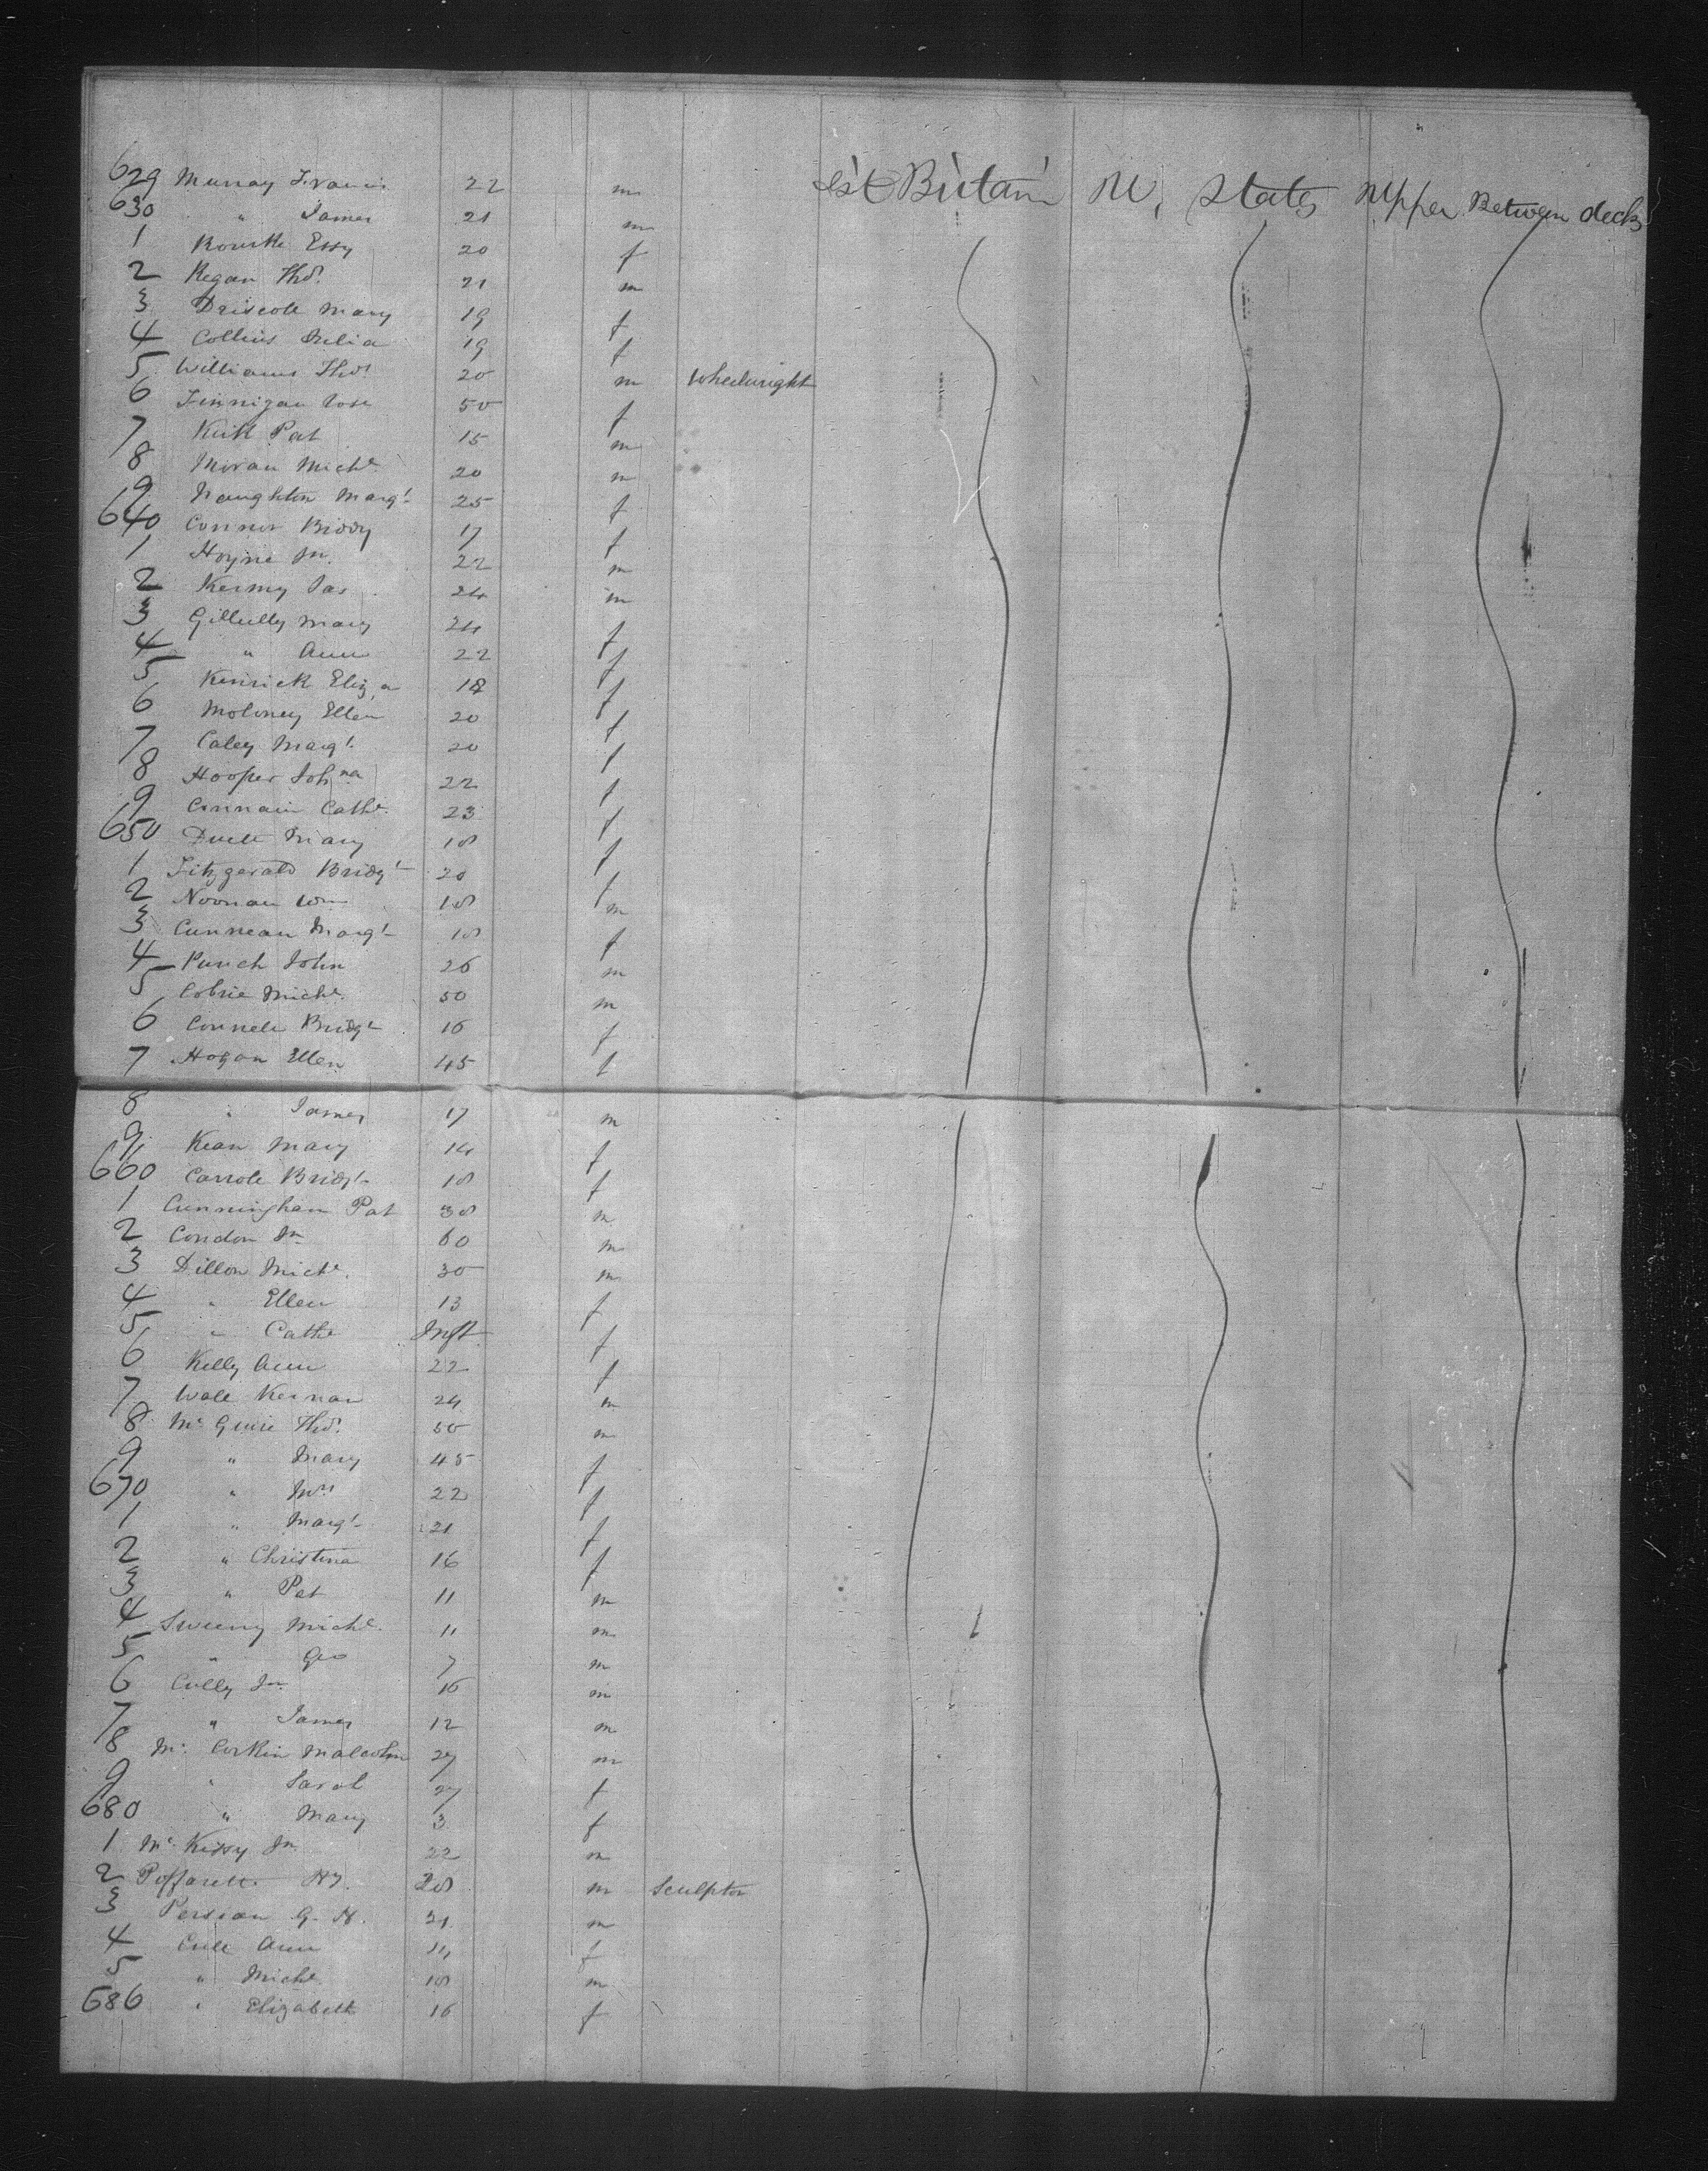 629 Murray Francis 22 m Gt Britain U. States Upper Between decks
630 " James 21 m
1 Rourke Essy 20 f
2 Regan Thos. 21 m
3 Driscoll Mary 19 f
4 Collins Julia 19 f
5 Williams Thos 20 m Wheelwright
6 Finnigan Rose 50 f
7 Kirk Pat 15 m
8 Moran Michl. 20 m
9 Naughton Margt. 25 f
640 Connor Biddy 17 f
1 Hoyne Jn. 22 m
2 Jas 24 m
3 Gillully Mary 24 f
4 " Ann 22 f
5 Kenrick Eliza 18 f
6 Moloney Ellen 20 f
7 Caley Margt. 20 f
8 Hooper Johna 22 f
9 Cunnain Cathe. 23 f
650 Mary 18 f
1 Fitzgerald Bridgt 20 f
2 Noonan Wm 18 m
3 Cunnean Margt 18 f
4 Punch John 26 m
5 Michl. 50 m
6 Connell Bridgt 16 f
7 Hogan Ellen 45 f
8 " James 17 m
9 Kean Mary 14 f
660 Carroll Bridgt 18 f
1 Cunningham Pat 38 m
2 Condon Jn 60 m
3 Dillon Michl. 30 m
4 " Ellen 13 f
5 " Cathe Inft f
6 Kelly Ann 22 f
7 Wall Kernan 24 m
8 Mc Guire Thos. 50 m
9 " Mary 45 f
670 " 22 f
1 " Margt 21 f
2 " Christina 16 f
3 " Pat 11 m
4 Sweeny Michl. 11 m
5 " Geo 7 m
6 Cully Jn 16 m
7 " James 12 m
8 Mc Corkin Malcolm 27 m
9 " Sarah 27 f
680 " Mary 3 f
1 Mc Jn 22 m
2 Hy. 28 m Sculptor
3 Persian G. H. 21 m
4 Cull Ann f
5 " Michl 18 m
686 " Elizabeth 16 f